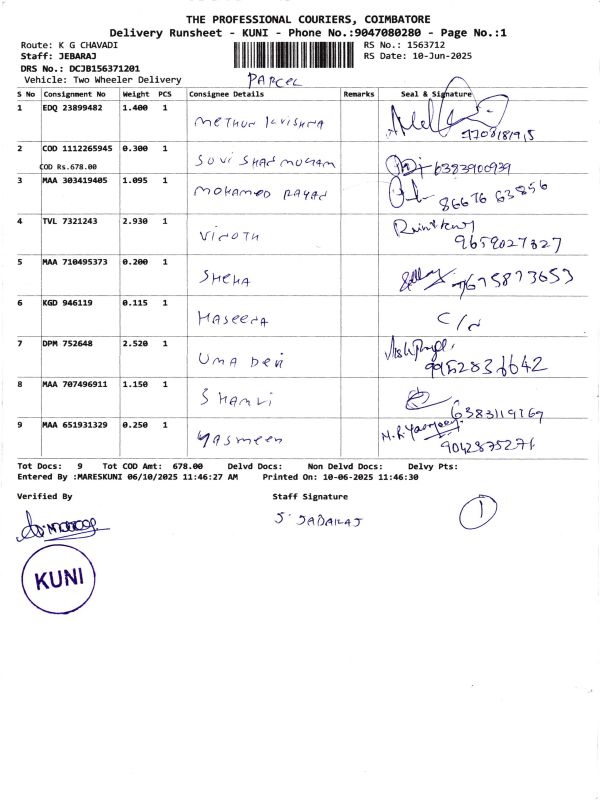 THE PROFESSIONAL COURIERS, COIMBATORE
Delivery Runsheet - KUNI - Phone No.:9047080280 - Page No.:1
Route: K G CHAVADI RS No.: 1563712
Staff: JEBARAJ RS Date: 10-Jun-2025
DRS No.: DCJB156371201
Vehicle: Two Wheeler Delivery PARCEL
S No Consignment No Weight PCS Consignee Details Remarks Seal & Signature
1 EDQ 23899482 1.400 1 METHUN KRISHNA
2 COD 1112265945 0.300 1 SUVI SHANMUGAM 6383900939
COD Rs.678.00
3 MAA 303419405 1.095 1 MOHAMED RAYAN 86676 63856
4 TVL 7321243 2.930 1 VINOTH 9659027327
5 MAA 710495373 0.200 1 SNEHA 7675873653
6 KGD 946119 0.115 1 HASEENA C/N
7 DPM 752648 2.520 1 UMA DEVI 9952836642
8 MAA 707496911 1.150 1 6383119769
9 MAA 651931329 0.250 1 Yasmeen 9042875271
Tot Docs: 9 Tot COD Amt: 678.00 Delvd Docs: Non Delvd Docs: Delvy Pts:
Entered By :MARESKUNI 06/10/2025 11:46:27 AM Printed On: 10-06-2025 11:46:30
Verified By Staff Signature
S. JABARAJ 1
KUNI